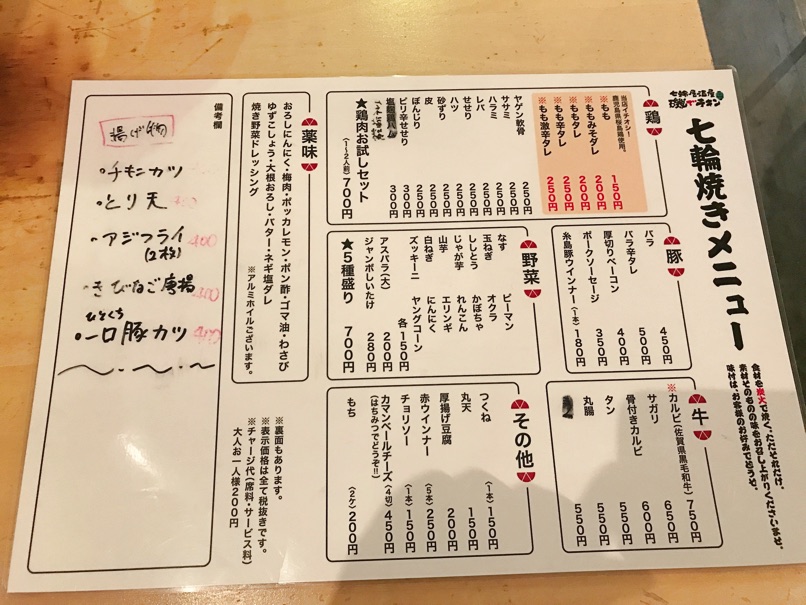 七輪焼きメニュー
食材を炭火で焼く、ただそれだけ。
素材そのものの味をお召し上がりくださいませ。
味付は、お客様のお好みでどうぞ。
鶏
当店イチオシ!
鹿児島県桜島鶏使用。
※もも 150円
※ももみそダレ 200円
※ももタレ 200円
※もも辛タレ 250円
※もも激辛タレ 250円
ヤゲン軟骨 250円
ササミ 250円
ハラミ 250円
レバ 250円
せせり 250円
ハツ 250円
砂ずり 250円
皮 250円
ぼんじり 250円
ピリ辛せせり 300円
300円
★鶏肉お試しセット
(1〜2人前) 700円
豚
バラ 450円
バラ辛タレ 500円
厚切りベーコン 400円
ポークソーセージ 350円
糸島豚ウインナー(1本) 180円
牛
※カルビ(佐賀県黒毛和牛) 750円
サガリ 650円
骨付きカルビ 600円
タン 550円
丸腸 550円
550円
野菜
なす
玉ねぎ
ししとう
じゃが芋
山芋
白ねぎ
ズッキーニ
ピーマン
オクラ
かぼちゃ
れんこん
エリンギ
にんにく
ヤングコーン
各150円
アスパラ(大) 200円
ジャンボしいたけ 280円
★5種盛り 700円
その他
つくね (1本)150円
丸天 150円
厚揚げ豆腐 200円
赤ウインナー (5本)250円
チョリソー (1本)150円
カマンベールチーズ (4切)450円
(はちみつでどうぞ!!)
もち (2ケ)200円
薬味
おろしにんにく・梅肉・ポッカレモン・ポン酢・ゴマ油・わさび
ゆずこしょう・大根おろし・バター・ネギ塩ダレ
焼き野菜ドレッシング
※アルミホイルございます。
※裏面もあります。
※表示価格は全て税抜きです。
※チャージ代(席料・サービス料)
大人お一人様200円
備考欄
揚げ物
・チキンカツ
・とり天
・アジフライ 400
(2枚)
・きびなご唐揚
ひとくち
・一口豚カツ